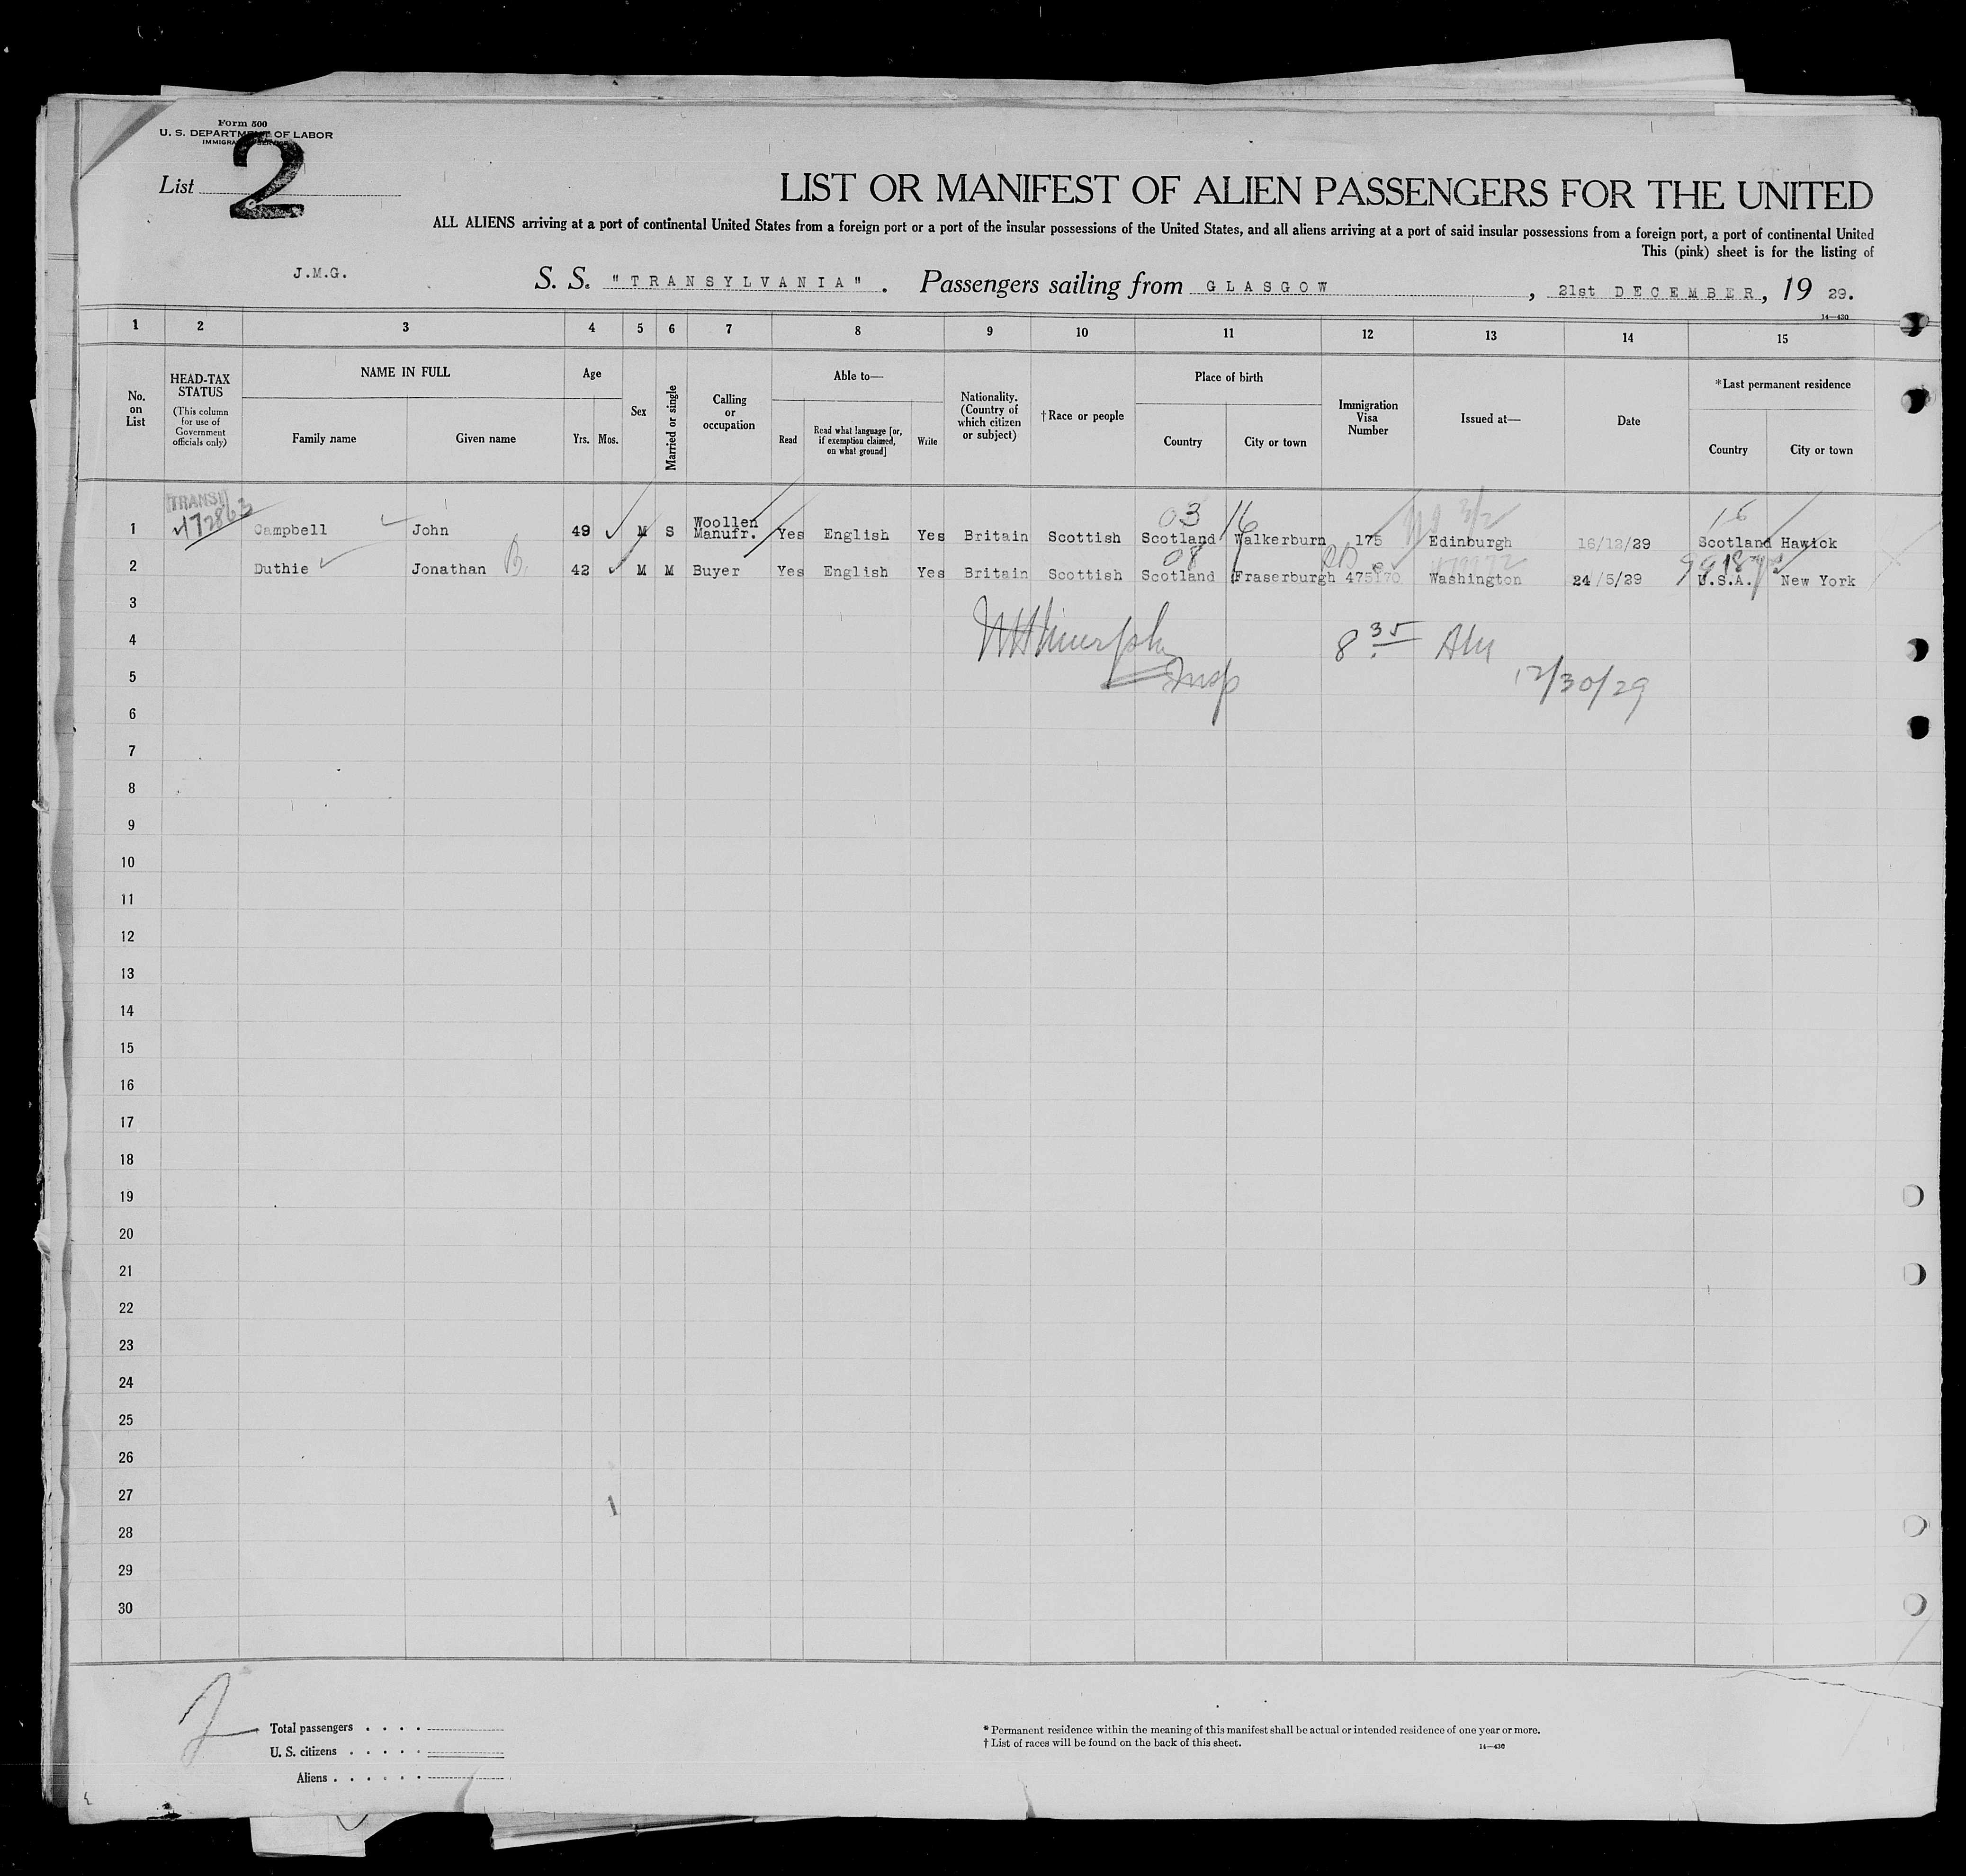 Form 500
U. S. DEPARTMENT OF LABOR
IMMIGRATION SERVICE
List 2
LIST OR MANIFEST OF ALIEN PASSENGERS FOR THE UNITED
ALL ALIENS arriving at a port of continental United States from a foreign port or a port of the insular possessions of the United States, and all aliens arriving at a port of said insular possessions from a foreign port, a port of continental United
This (pink) sheet is for the listing of
J.M.G. S. S. "TRANSYLVANIA". Passengers sailing from GLASGOW, 21st DECEMBER, 19 29.
14—430
1 2 3 4 5 6 7 8 9 10 11 12 13 14 15
No. on List
HEAD-TAX STATUS (This column for use of Government officials only)
NAME IN FULL
Family name Given name
Age
Yrs. Mos.
Sex
Married or single
Calling or occupation
Able to—
Read Read what language [or, if exemption claimed, on what ground] Write
Nationality. (Country of which citizen or subject)
†Race or people
Place of birth
Country City or town
Immigration Visa Number
Issued at—
Date
*Last permanent residence
Country City or town
TRANSIT
03 16 16
1 Campbell John 49 M S Woollen Manufr. Yes English Yes Britain Scottish Scotland Walkerburn 175 Edinburgh 16/12/29 Scotland Hawick
08
2 Duthie Jonathan B. 42 M M Buyer Yes English Yes Britain Scottish Scotland Fraserburgh 475170 Washington 24/5/29 U.S.A. New York
3
4 Murphy 8 35 AM
5 Insp 12/30/29
6
7
8
9
10
11
12
13
14
15
16
17
18
19
20
21
22
23
24
25
26
27
28
29
30
2
Total passengers . . . .
U. S. citizens . . . . .
Aliens . . . . . .
* Permanent residence within the meaning of this manifest shall be actual or intended residence of one year or more.
† List of races will be found on the back of this sheet.
14—430